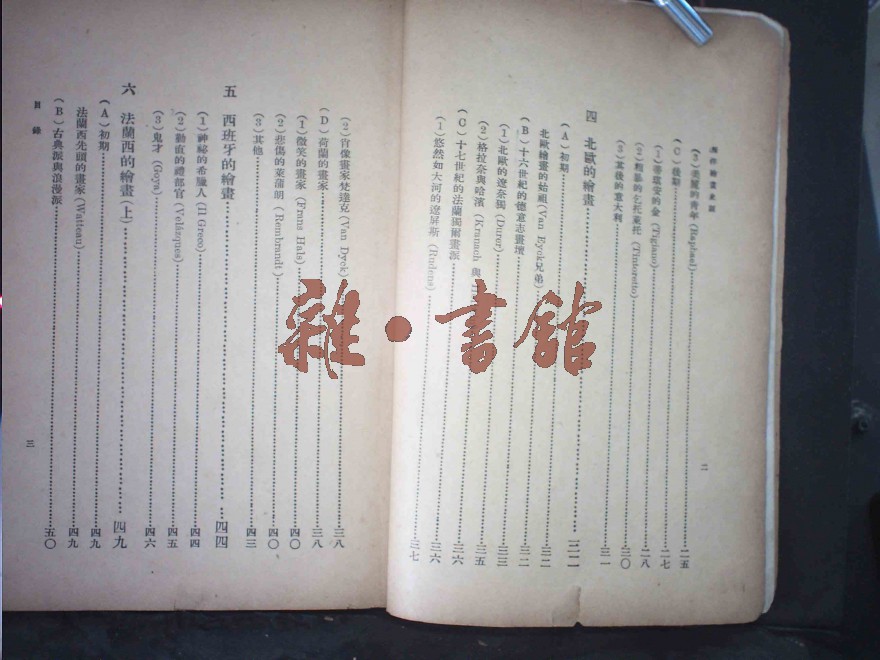 西洋繪畫史話
(3)美麗的青年(Raphael)……二五
(C)後期……二七
(1)蒂埝安的金(Tigiano)……二八
(2)粗暴的乞托萊托(Tintoretto)……三〇
(3)其後的意大利……三一
四 北歐的繪畫……三二
(A)初期……三二
北歐繪畫的始祖(Van Eyck兄弟)……三二
(B)十六世紀的德意志畫壇……三三
(1)北歐的遼奈獨(Durer)……三三
(2)格拉奈與哈濱(Kranach 與……三五
(C)十七世紀的法蘭獨爾畫派……三六
(1)悠然如大河的遼屏斯(Rudens)……三六
三七
二
(2)肖像畫家梵達克(Van Dyck)……三八
(D)荷蘭的畫家……三八
(1)微笑的畫家(Frans Hals)……四〇
(2)悲傷的萊蒲朗(Rembrandt)……四〇
(3)其他……四三
五 西班牙的繪畫……四四
(1)神祕的希臘人(Il Greco)……四四
(2)勤直的禮部官(Velázques)……四五
(3)鬼才(Goya)……四六
六 法蘭西的繪畫(上)……四九
(A)初期……四九
法蘭西先頭的畫家(Watteau)……四九
(B)古典派與浪漫派……五〇
目錄
三
雜·書館